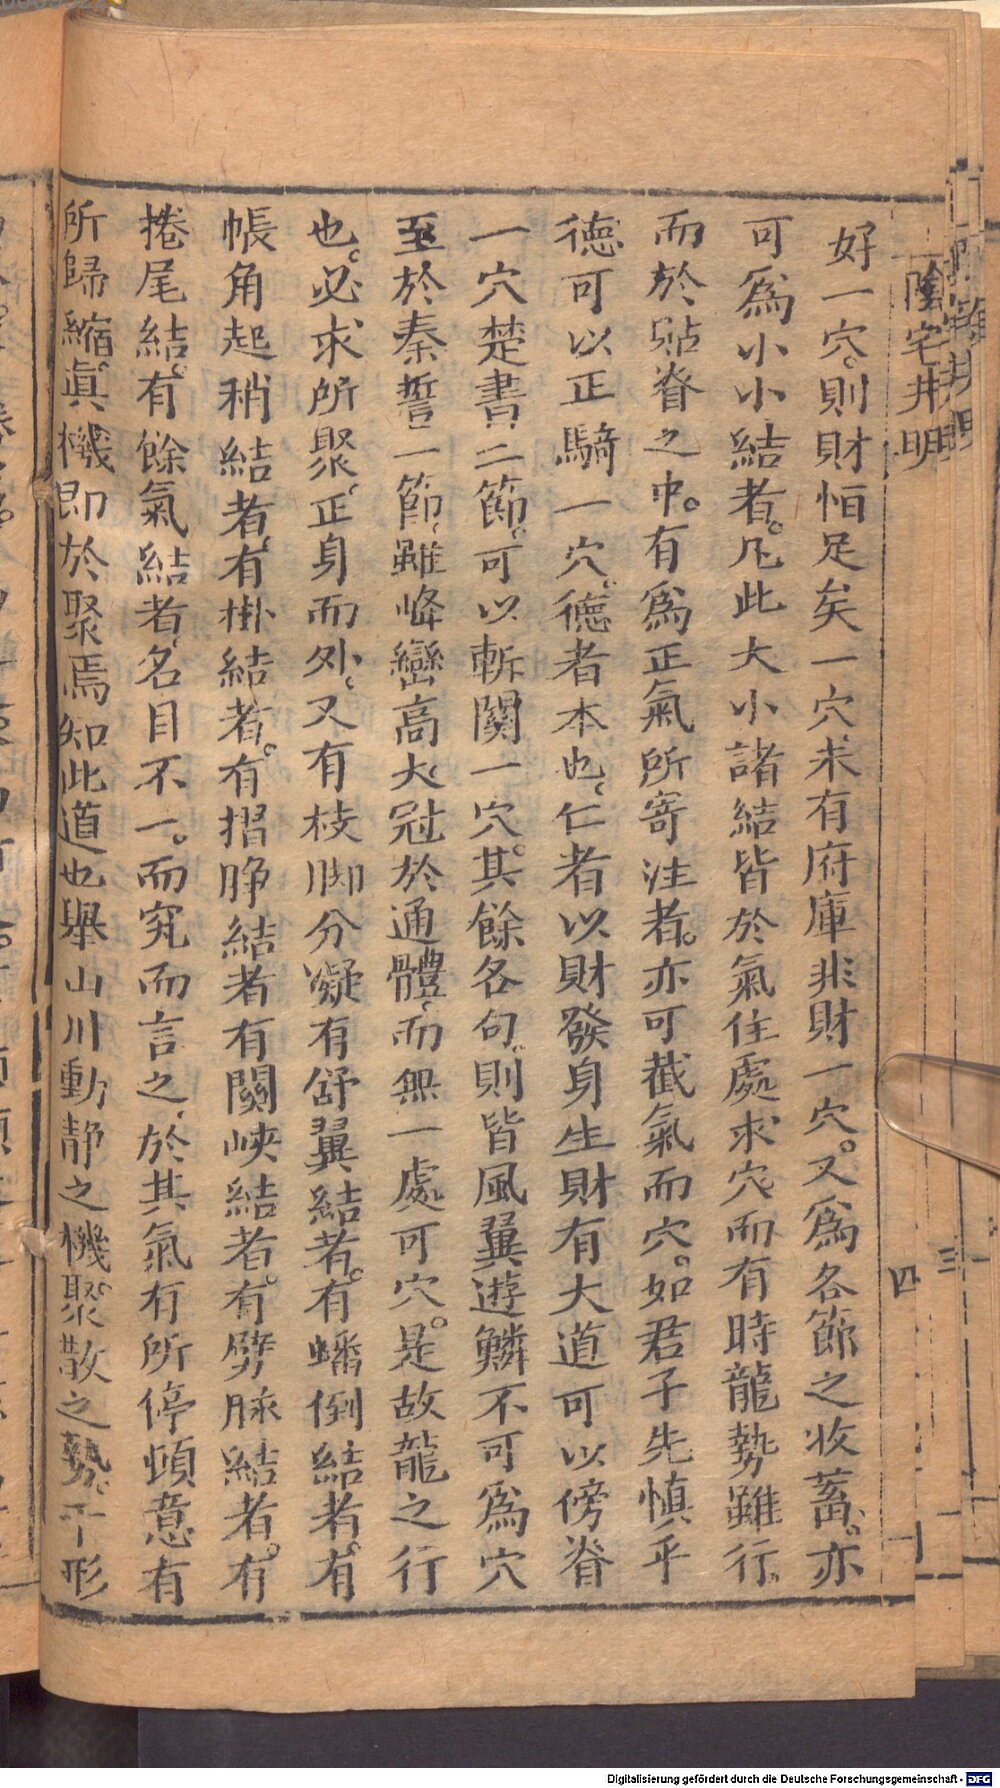 陰宅井明
四
好一穴。則財恒足矣一穴。未有府庫非財一穴。又爲各節之收蓄。亦
可爲小小結者。凡此大小諸結皆於氣住處求穴而有時龍勢雖行。
而於貼脊之中。有爲正氣所寄注者。亦可截氣而穴。如君子先慎乎
德可以正騎一穴。德者本也。仁者以財發身生財有大道可以傍脊
一穴楚書二節。可以斬關一穴。其餘各句。則皆風翼遊鱗不可爲穴
至於秦誓一節。雖峰巒高大冠於通體。而無一處可穴。是故龍之行
也。必求所聚。正身而外。又有枝脚分凝有舒翼結者。有蟠倒結者。有
帳角起稍結者。有掛結者。有摺脝結者有關峽結者。有劈脉結者。有
捲尾結。有餘氣結者。名目不一。而究而言之。於其氣有所停頓意有
所歸縮。眞機即於聚焉知此道也舉山川動靜之機聚散之勢。千形
Digitalisierung gefördert durch die Deutsche Forschungsgemeinschaft - DFG